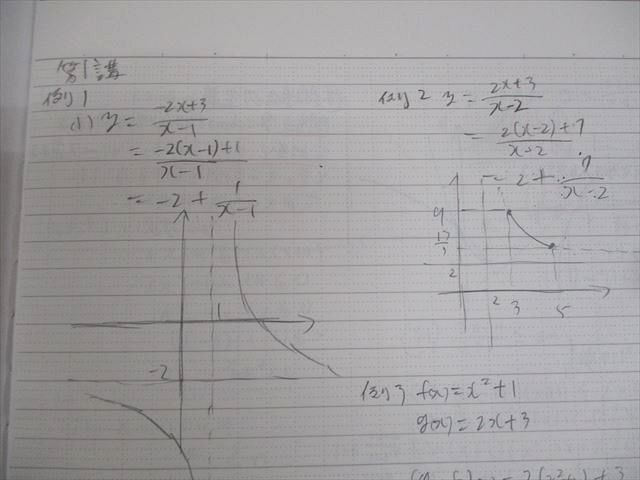 第1講
例1
(1) y = (-2x+3)/(x-1)
= (-2(x-1)+1)/(x-1)
= -2 + 1/(x-1)
1
-2
例2 y = (2x+3)/(x-2)
= (2(x-2)+7)/(x-2)
= 2 + 7/(x-2)
9
2
2 3 5
例3 f(x)=x²+1
g(x)=2x+3